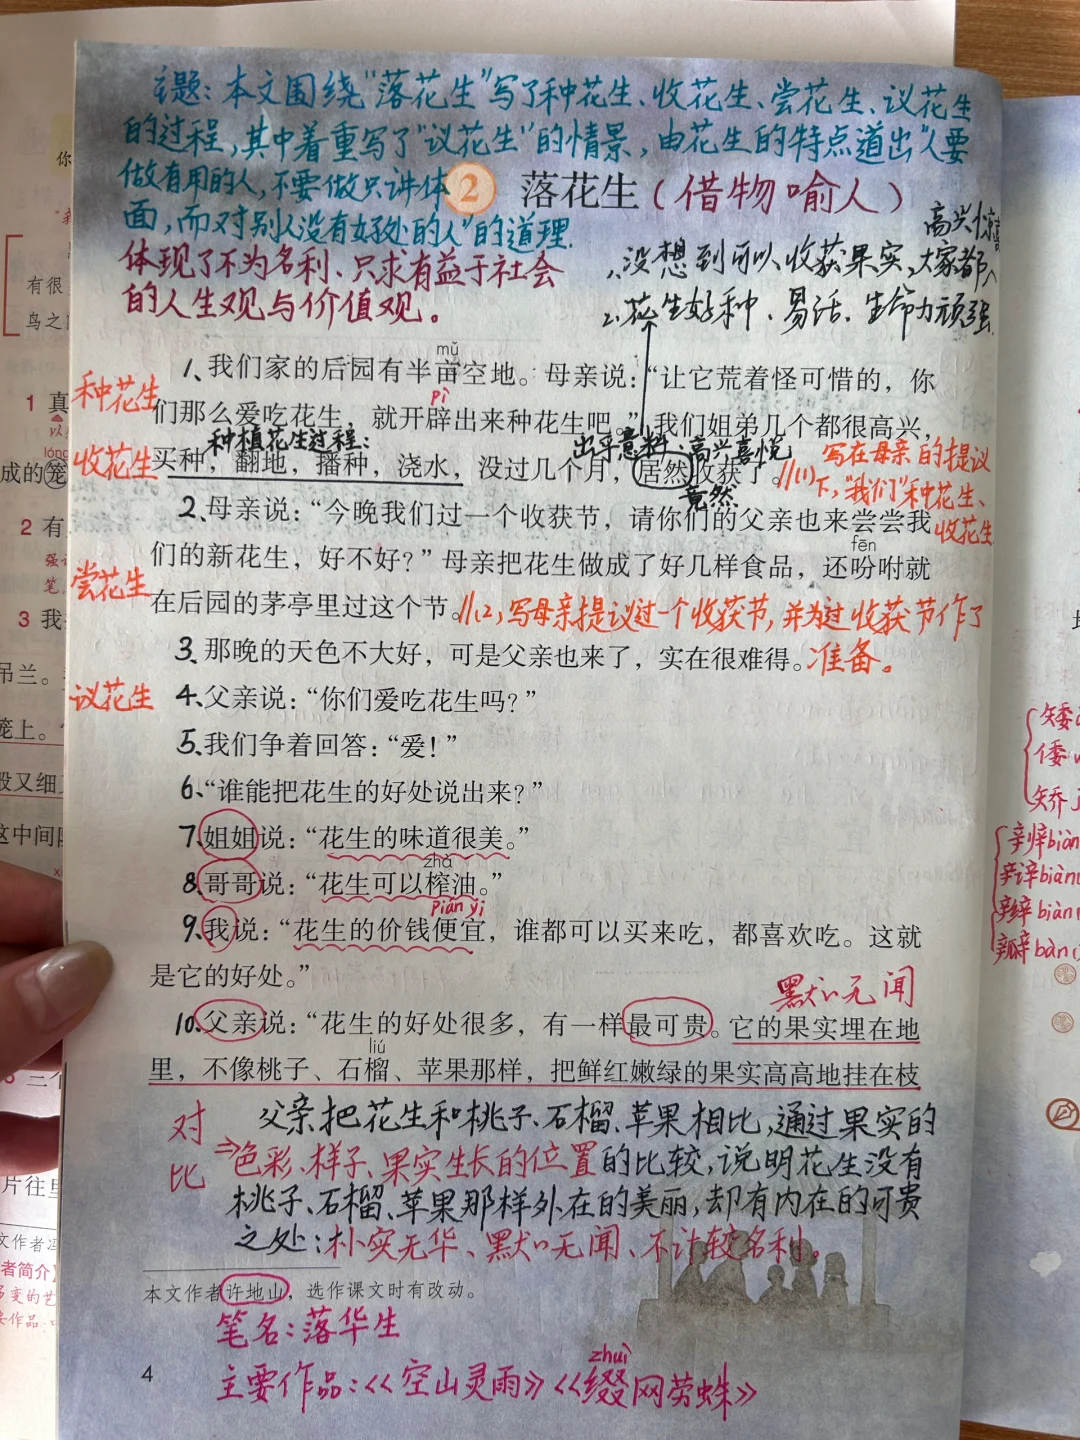 主题：本文围绕“落花生”写了种花生、收花生、尝花生、议花生
的过程，其中着重写了“议花生”的情景，由花生的特点道出“人要
做有用的人，不要做只讲体
面，而对别人没有好处的人”的道理.
体现了不为名利、只求有益于社会
的人生观与价值观。
2 落花生（借物喻人）
高兴惊喜
1、没想到可以收获果实，大家都
2、花生好种、易活、生命力顽强.
mǔ
1、我们家的后园有半亩空地。母亲说：“让它荒着怪可惜的，你
种花生
pì
们那么爱吃花生，就开辟出来种花生吧。”我们姐弟几个都很高兴，
种植花生过程：
出乎意料：高兴喜悦
收花生
买种，翻地，播种，浇水，没过几个月，居然收获了。
竟然
//(1)写在母亲的提议
下，“我们”种花生、
收花生
2、母亲说：“今晚我们过一个收获节，请你们的父亲也来尝尝我
fēn
们的新花生，好不好？”母亲把花生做成了好几样食品，还吩咐就
尝花生
在后园的茅亭里过这个节。//(2),写母亲提议过一个收获节，并为过收获节作了
准备。
3、那晚的天色不大好，可是父亲也来了，实在很难得。
议花生
4、父亲说：“你们爱吃花生吗？”
5、我们争着回答：“爱！”
6、“谁能把花生的好处说出来？”
7、姐姐说：“花生的味道很美。”
zhà
8、哥哥说：“花生可以榨油。”
pián yi
9、我说：“花生的价钱便宜，谁都可以买来吃，都喜欢吃。这就
是它的好处。”
默默无闻
10、父亲说：“花生的好处很多，有一样最可贵。它的果实埋在地
liú
里，不像桃子、石榴、苹果那样，把鲜红嫩绿的果实高高地挂在枝
对
比
父亲把花生和桃子、石榴、苹果相比，通过果实的
⇒色彩、样子、果实生长的位置的比较，说明花生没有
桃子、石榴、苹果那样外在的美丽，却有内在的可贵
之处：朴实无华、默默无闻、不计较名利。
本文作者许地山，选作课文时有改动。
笔名：落华生
zhuì
主要作品：《空山灵雨》《缀网劳蛛》
4
有很
鸟之
1 真
lóng
成的笼
2 有
3 我
吊兰。
笼上。
般又细
这中间
三个
片往里
文作者冯
者简介】
多变的艺
矮
倭
矫
辨biàn
辩biàn
辫biàn
瓣bàn